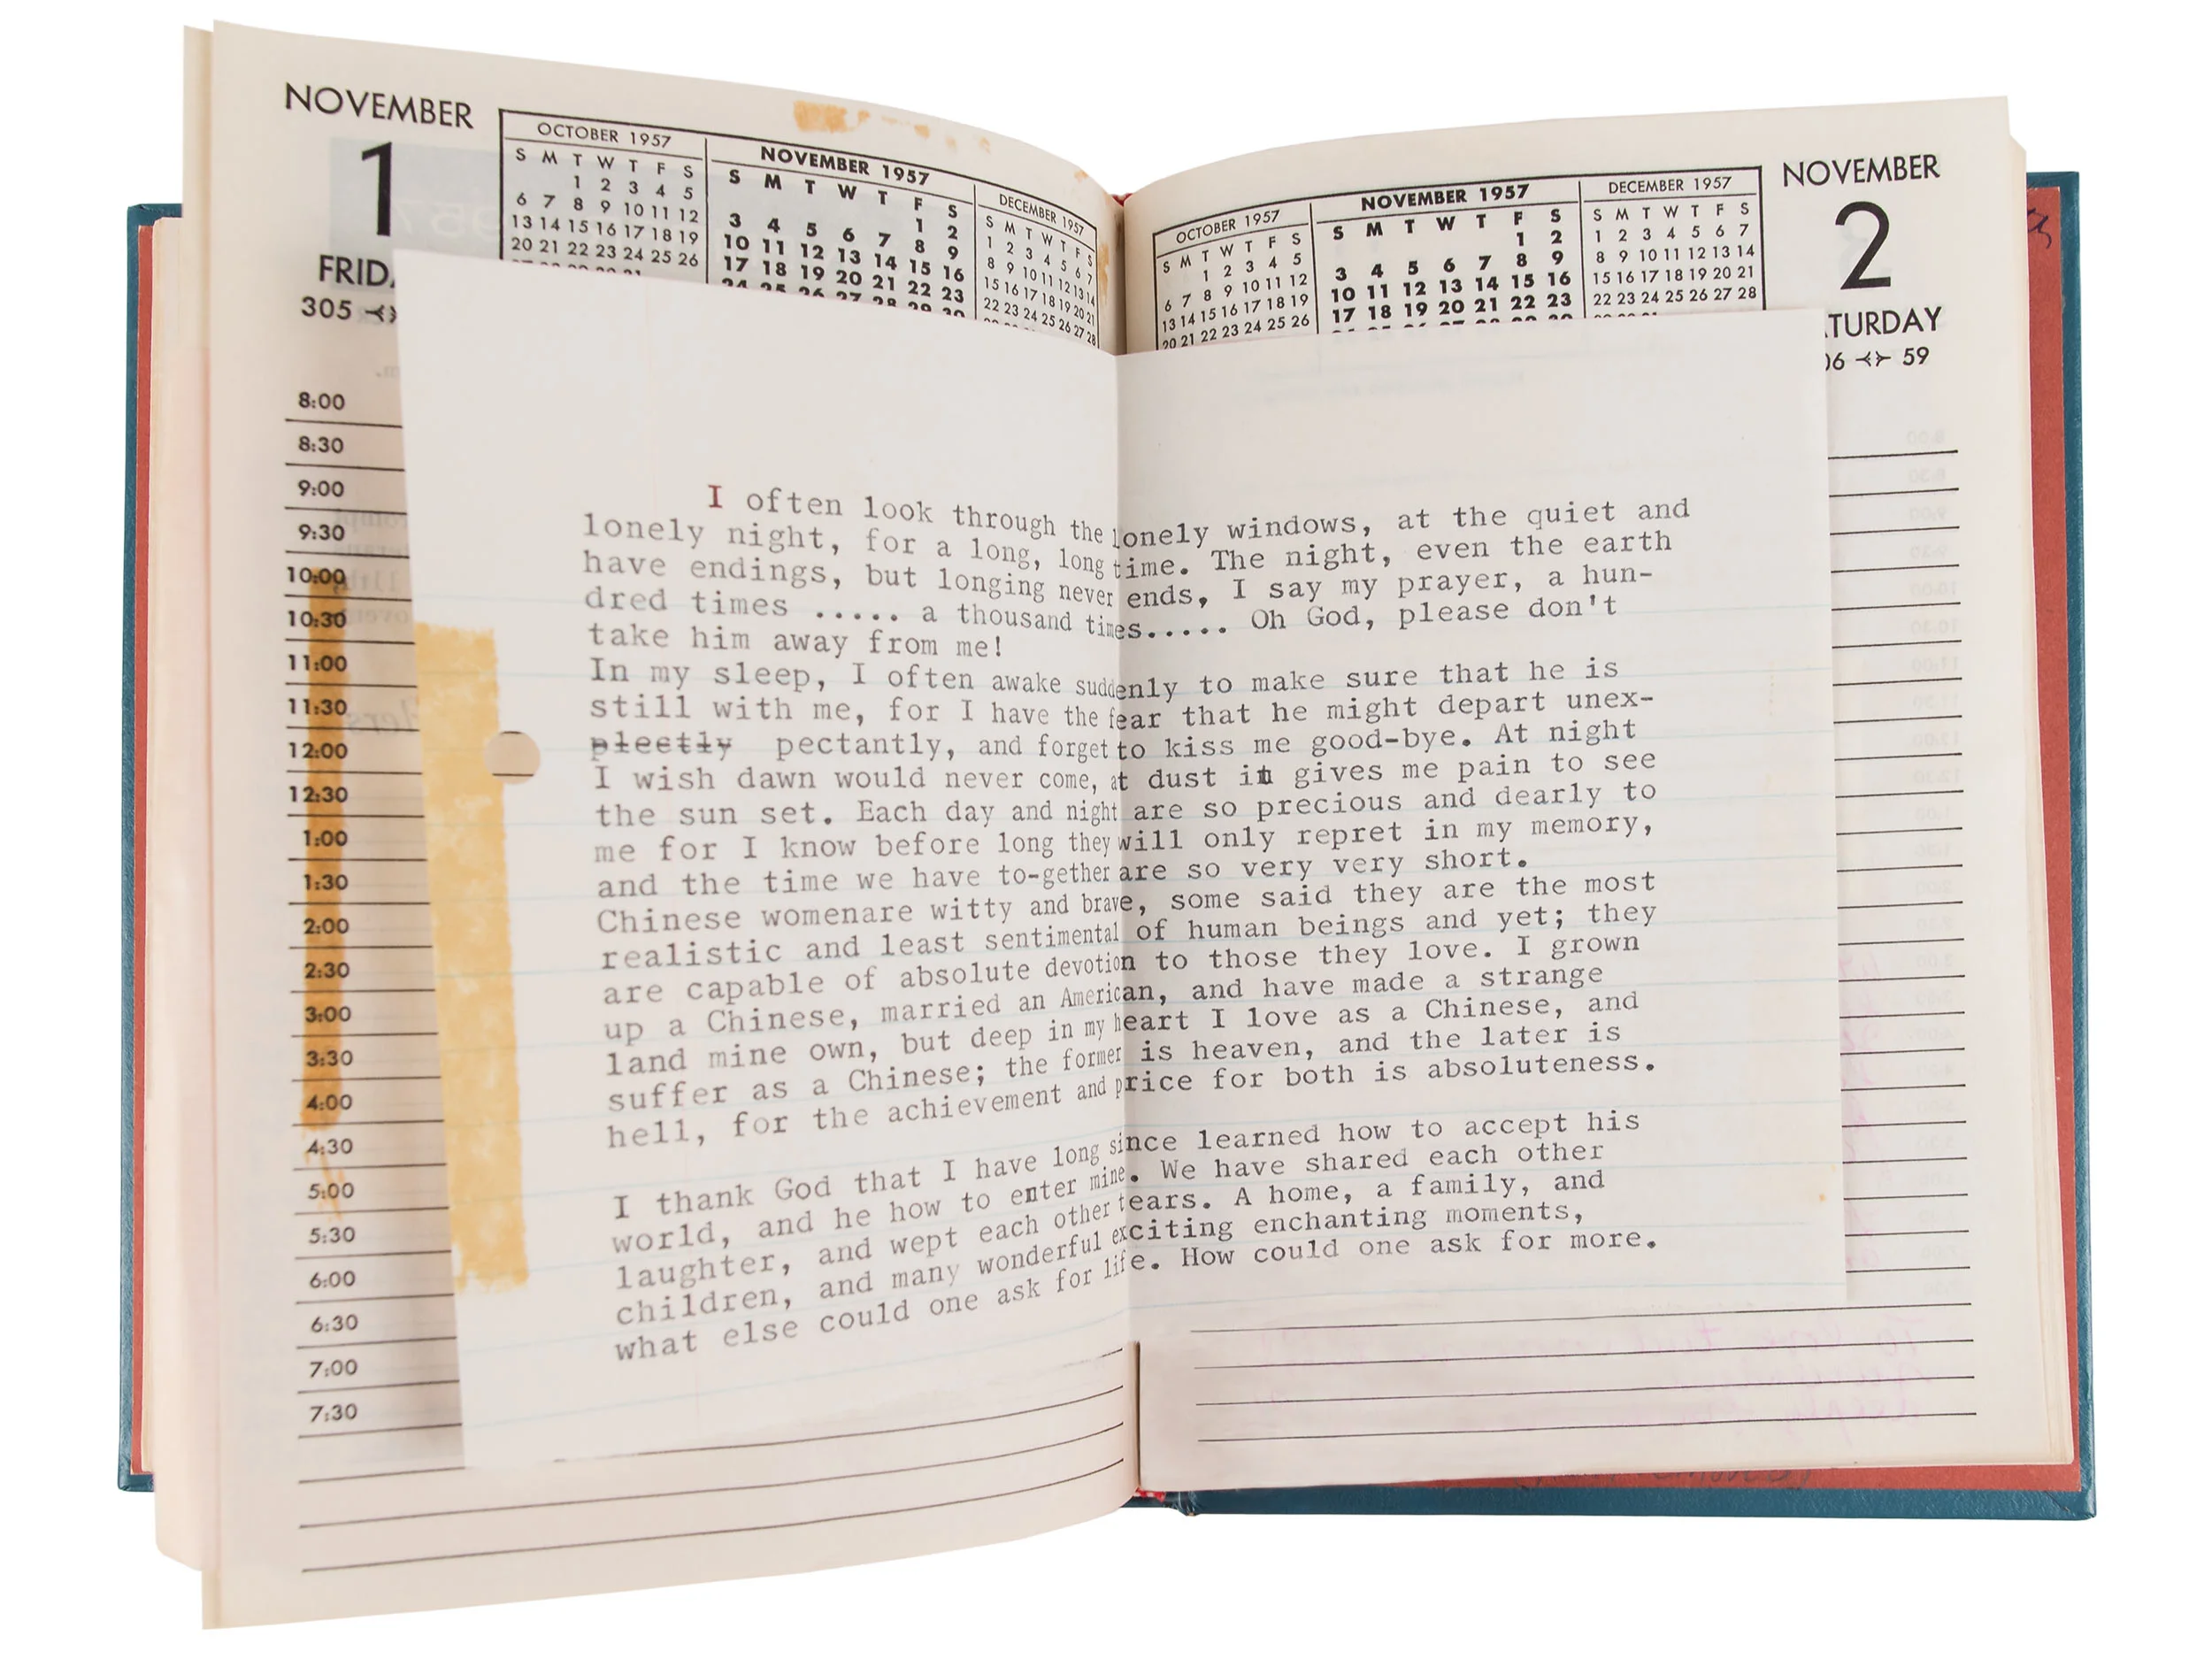 NOVEMBER
1
305
OCTOBER 1957
S M T W T F S
1 2 3 4 5
6 7 8 9 10 11 12
13 14 15 16 17 18 19
20 21 22 23 24 25 26
NOVEMBER 1957
S M T W T F S
1 2
3 4 5 6 7 8 9
10 11 12 13 14 15 16
17 18 19 20 21 22 23
24 25 26 27 28 29 30
DECEMBER 1957
S M T W T F S
1 2 3 4 5 6 7
8 9 10 11 12 13 14
15 16 17 18 19 20 21
22 23 24 25 26 27 28
8:00
8:30
9:00
9:30
10:00
10:30
11:00
11:30
12:00
12:30
1:00
1:30
2:00
2:30
3:00
3:30
4:00
4:30
5:00
5:30
6:00
6:30
7:00
7:30
OCTOBER 1957
S M T W T F S
1 2 3 4 5
6 7 8 9 10 11 12
13 14 15 16 17 18 19
20 21 22 23 24 25 26
NOVEMBER 1957
S M T W T F S
1 2
3 4 5 6 7 8 9
10 11 12 13 14 15 16
17 18 19 20 21 22 23
DECEMBER 1957
S M T W T F S
1 2 3 4 5 6 7
8 9 10 11 12 13 14
15 16 17 18 19 20 21
22 23 24 25 26 27 28
NOVEMBER
2
59
I often look through the lonely windows, at the quiet and
lonely night, for a long, long time. The night, even the earth
have endings, but longing never ends, I say my prayer, a hun-
dred times ..... a thousand times..... Oh God, please don't
take him away from me!
In my sleep, I often awake suddenly to make sure that he is
still with me, for I have the fear that he might depart unex-
plectly pectantly, and forget to kiss me good-bye. At night
I wish dawn would never come, at dust it gives me pain to see
the sun set. Each day and night are so precious and dearly to
me for I know before long they will only repret in my memory,
and the time we have to-gether are so very very short.
Chinese womenare witty and brave, some said they are the most
realistic and least sentimental of human beings and yet; they
are capable of absolute devotion to those they love. I grown
up a Chinese, married an American, and have made a strange
land mine own, but deep in my heart I love as a Chinese, and
suffer as a Chinese; the former is heaven, and the later is
hell, for the achievement and price for both is absoluteness.
I thank God that I have long since learned how to accept his
world, and he how to enter mine. We have shared each other
laughter, and wept each other tears. A home, a family, and
children, and many wonderful exciting enchanting moments,
what else could one ask for life. How could one ask for more.